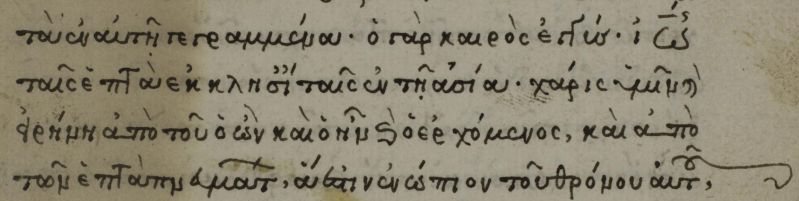 τὰ ἐν αὐτῇ γεγραμμένα· ὁ γὰρ καιρὸς ἐγγύς· ἰω
ταῖς ἑπτὰ ἐκκλησί ταῖς ἐν τῇ ἀσία· χάρις ὑμῖν κὶ
εἰρήνη ἀπὸ τοῦ ὁ ὢν καὶ ὁ ἦν κὶ ὁ ἐρχόμενος, καὶ ἀπὸ
τῶν ἑπτὰ πνευμάτ, ἅ ἐστιν ἐνώπιον τοῦ θρόνου αὐτοῦ,